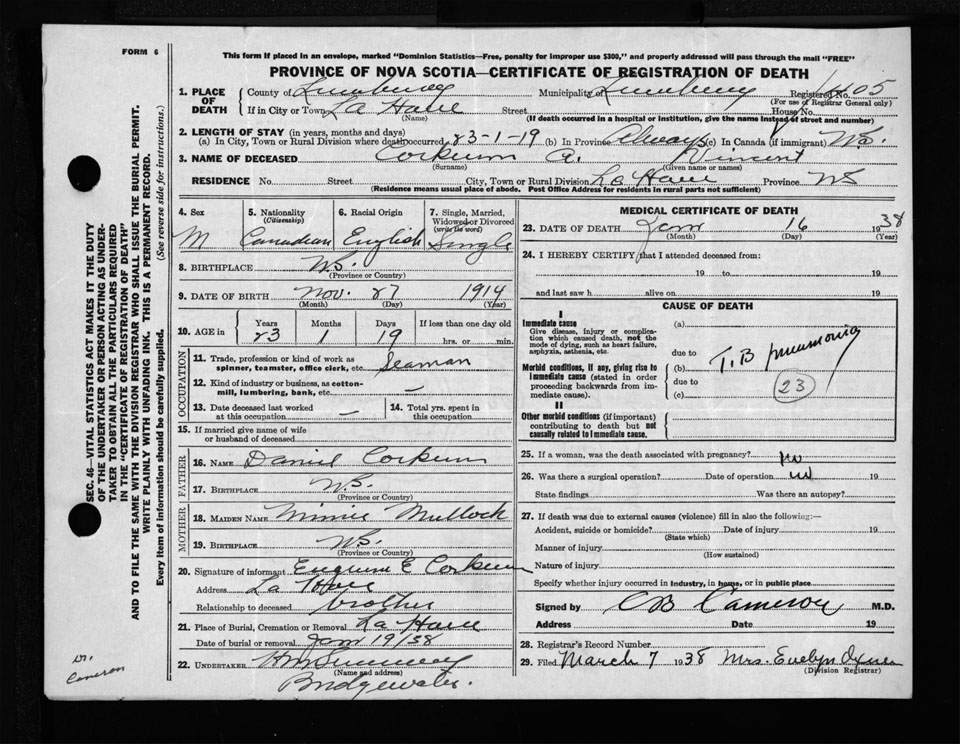 FORM 6
This form if placed in an envelope, marked "Dominion Statistics—Free, penalty for improper use $300," and properly addressed will pass through the mail "FREE"
PROVINCE OF NOVA SCOTIA—CERTIFICATE OF REGISTRATION OF DEATH
SEC. 46—VITAL STATISTICS ACT MAKES IT THE DUTY
OF THE UNDERTAKER OR PERSON ACTING AS UNDER-
TAKER TO OBTAIN ALL THE PARTICULARS REQUIRED
IN THE "CERTIFICATE OF REGISTRATION OF DEATH"
AND TO FILE THE SAME WITH THE DIVISION REGISTRAR WHO SHALL ISSUE THE BURIAL PERMIT.
WRITE PLAINLY WITH UNFADING INK. THIS IS A PERMANENT RECORD.
Every item of information should be carefully supplied. (See reverse side for instructions.)
1. PLACE OF DEATH County of Lunenburg Municipality of Lunenburg Registered No. 105
(For use of Registrar General only)
If in City or Town La Have Street House No.
(Name) (If death occurred in a hospital or institution, give the name instead of street and number)
2. LENGTH OF STAY (in years, months and days)
(a) In City, Town or Rural Division where death occurred 23-1-19 (b) In Province Always (c) In Canada (if immigrant) N.S.
3. NAME OF DECEASED Corkum A. Vincent
(Surname) (Given name or names)
RESIDENCE No. Street City, Town or Rural Division La Have Province NS
(Residence means usual place of abode. Post Office Address for residents in rural parts not sufficient)
4. Sex M
5. Nationality (Citizenship) Canadian
6. Racial Origin English
7. Single, Married, Widowed or Divorced (write the word) Single
8. BIRTHPLACE N.S.
(Province or Country)
9. DATE OF BIRTH Nov. 27 1914
(Month) (Day) (Year)
10. AGE in Years 23 Months 1 Days 19 If less than one day old hrs. or min.
OCCUPATION
11. Trade, profession or kind of work as spinner, teamster, office clerk, etc. Seaman
12. Kind of industry or business, as cotton-mill, lumbering, bank, etc. —
13. Date deceased last worked at this occupation —
14. Total yrs. spent in this occupation
15. If married give name of wife or husband of deceased
FATHER
16. NAME Daniel Corkum
17. BIRTHPLACE N.S.
(Province or Country)
MOTHER
18. MAIDEN NAME Minnie Mullock
19. BIRTHPLACE N.S.
(Province or Country)
20. Signature of informant E Corkum
Address La Have
Relationship to deceased brother
21. Place of Burial, Cremation or Removal La Have
Date of burial or removal Jan 19/38
22. UNDERTAKER
(Name and address)
Bridgewater.
Dr.
Cameron
MEDICAL CERTIFICATE OF DEATH
23. DATE OF DEATH Jan 16 1938
(Month) (Day) (Year)
24. I HEREBY CERTIFY that I attended deceased from:
19 to 19
and last saw h alive on 19
CAUSE OF DEATH
I
Immediate cause
Give disease, injury or complication which caused death, not the mode of dying, such as heart failure, asphyxia, asthenia, etc.
(a)
due to
Morbid conditions, if any, giving rise to immediate cause (stated in order proceeding backwards from immediate cause).
(b) T.B pneumonia
due to 23
(c)
II
Other morbid conditions (if important) contributing to death but not causally related to immediate cause.
25. If a woman, was the death associated with pregnancy? no
26. Was there a surgical operation? Date of operation no 19
State findings Was there an autopsy?
27. If death was due to external causes (violence) fill in also the following:—
Accident, suicide or homicide? Date of injury 19
(State which)
Manner of injury
(How sustained)
Nature of injury
Specify whether injury occurred in Industry, in home, or in public place
Signed by CB Cameron M.D.
Address Date 19
28. Registrar's Record Number
29. Filed March 7 1938 Mrs. Evelyn
(Division Registrar)